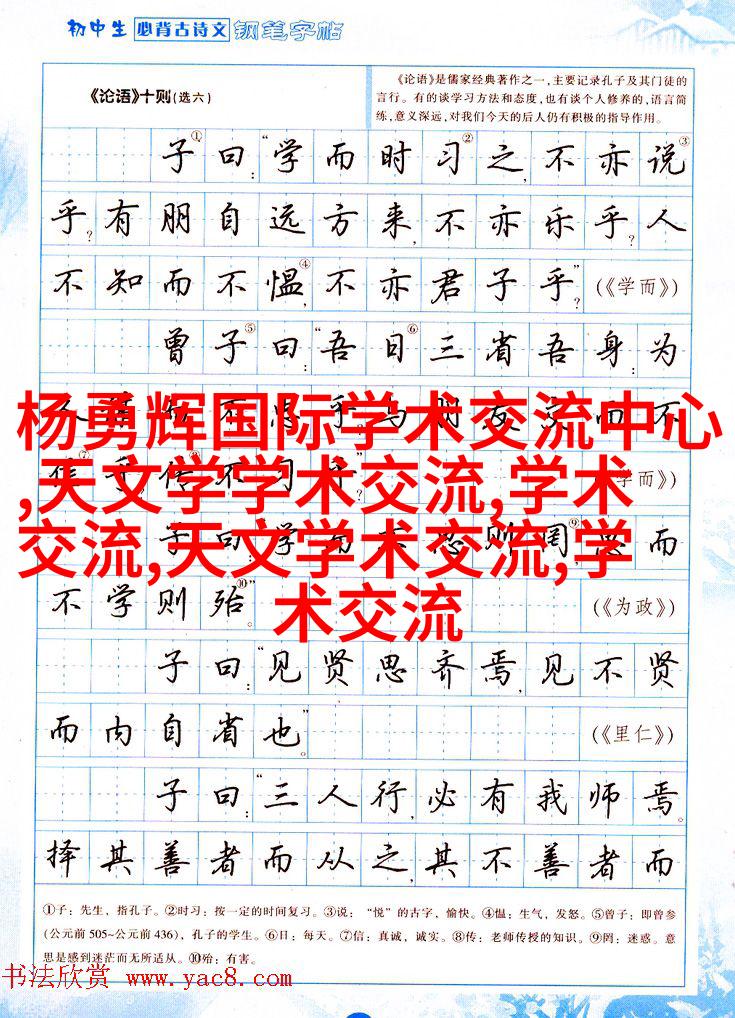 初中生 必背古诗文 钢笔字帖
《论语》十则(选六)
《论语》是儒家经典著作之一,主要记录孔子及其门徒的
言行。有的谈学习方法和态度,也有谈个人修养的,语言简
练,意义深远,对我们今天的后人仍有积极的指导作用。
子①曰:“学而时习②之,不亦说③
乎?有朋自远方来,不亦乐乎?人
不知而不愠④,不亦君子乎?” (《学而》)
曾子⑤曰:“吾日⑥三省吾身:为
杨勇辉国际学术交流中心
,天文学学术交流,学术
交流,天文学术交流,学
术交流
不学则殆⑩。” (《为政》)
子曰:“见贤思齐焉,见不贤
而内自省也。” (《里仁》)
子曰:“三人行,必有我师焉。
择其善者而从之,其不善者而
①子:先生,指孔子。②时习:按一定的时间复习。③说:“悦”的古字,愉快。④愠:生气,发怒。⑤曾子:即曾参
(公元前505~公元前436),孔子的学生。⑥日:每天。⑦信:真诚,诚实。⑧传:老师传授的知识。⑨罔:迷惑。意
思是感到迷茫而无所适从。⑩殆:有害。
书法欣赏 www.yac8.com